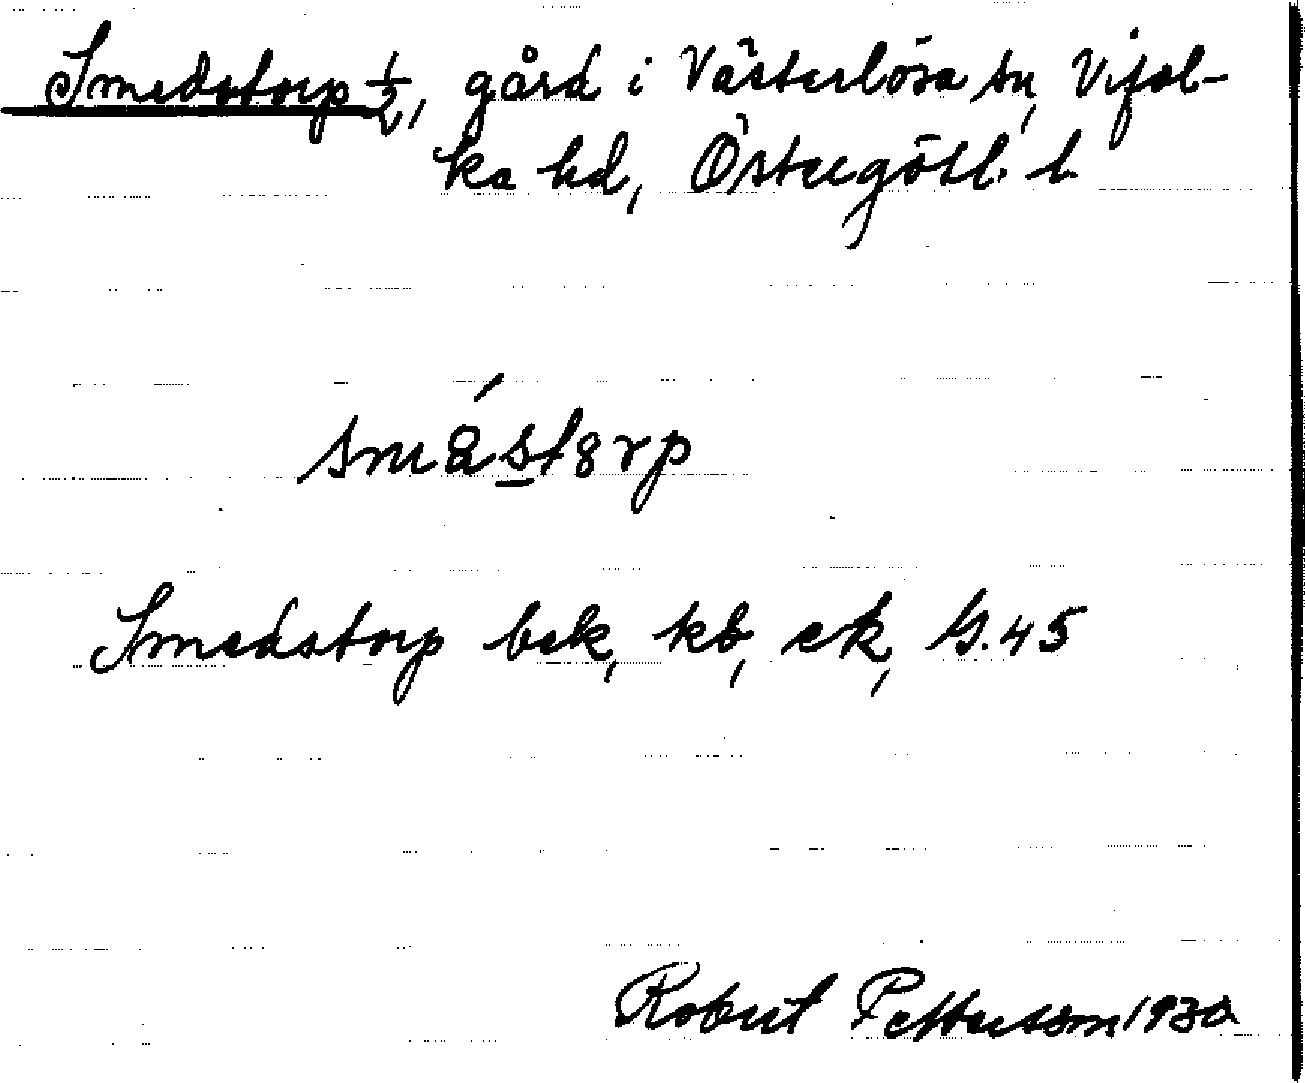 Smedstorp 1/2, gård i Västerlösa sn, Vifol-
ka hd, Östergötl. l.
Smedstorp bek, kb, ek, G.45
Robert Pettersson 1930